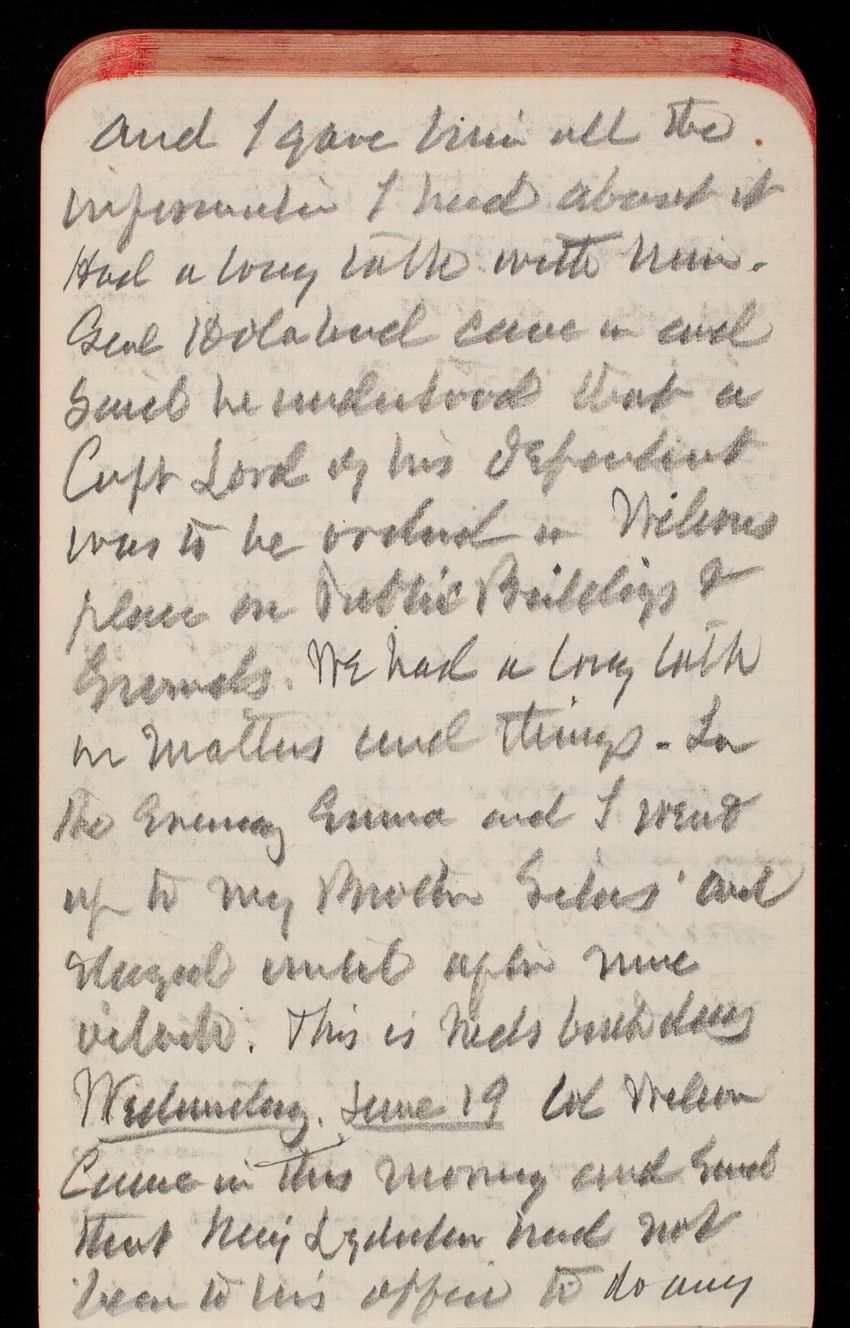 and I gave him all the
information I had about it
Had a long talk with him.
Genl Holabird came in and
said he understood that a
Capt Lord of his Department
was to be ordered in Wilsons
place on Public Buildings &
Grounds. We had a long talk
on matters and things - In
the Evening Emma and I went
up to my Brother Silas' and
stayed until after nine
o'clock. This is Neds birthday
Wednesday, June 19 Col Wilson
Came in this morning and said
that Maj Lydecker had not
been to his office to do any